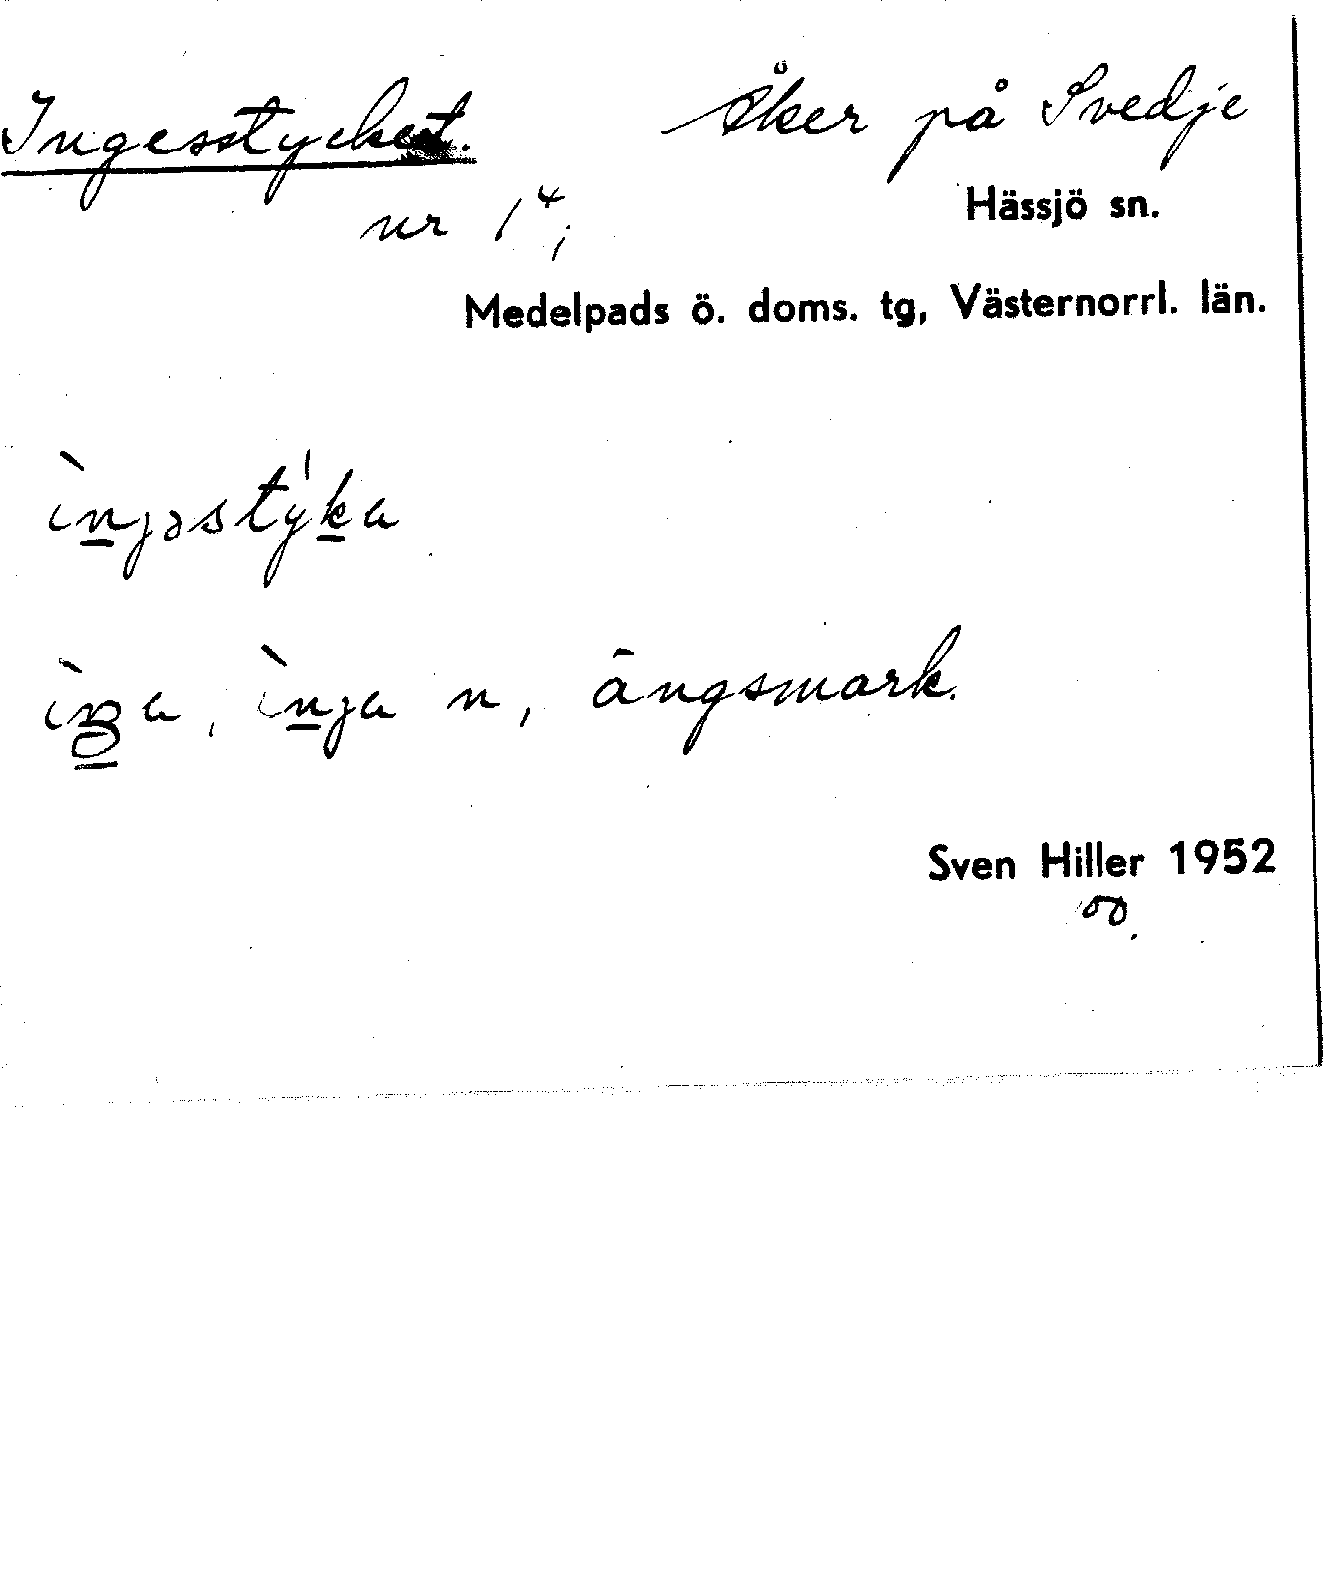 Ingesstycket. Åker på Svedje
nr 1⁴; Hässjö sn.
Medelpads ö. doms. tg, Västernorrl. län.
ìnjəstyka
ìŋa, ìnja n, ängsmark.
Sven Hiller 1952